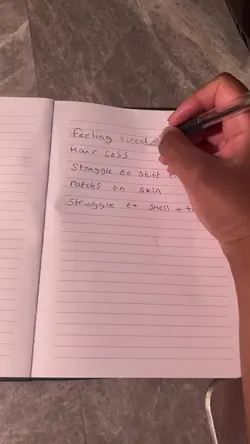 Feeling tired
Hair Loss
Struggle to shift
Patchs on skin
Struggle to smell +